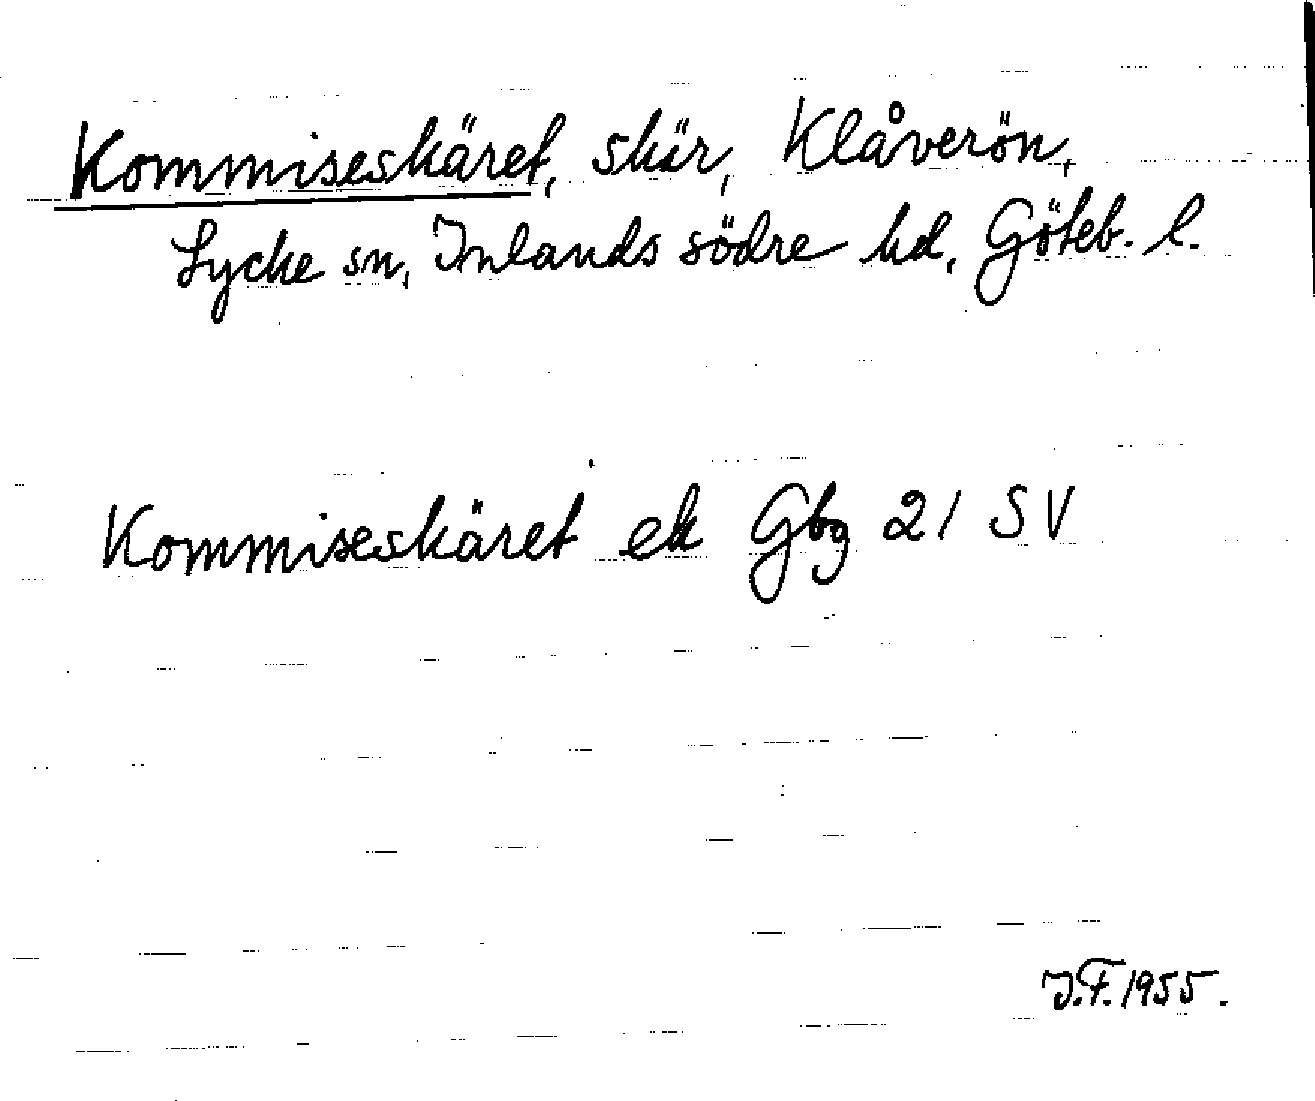 Kommiseskäret, skär, Klåverön,
Lycke sn, Inlands södre hd, Göteb. l.
Kommiseskäret ek Gbg 21 SV
J.F. 1955.